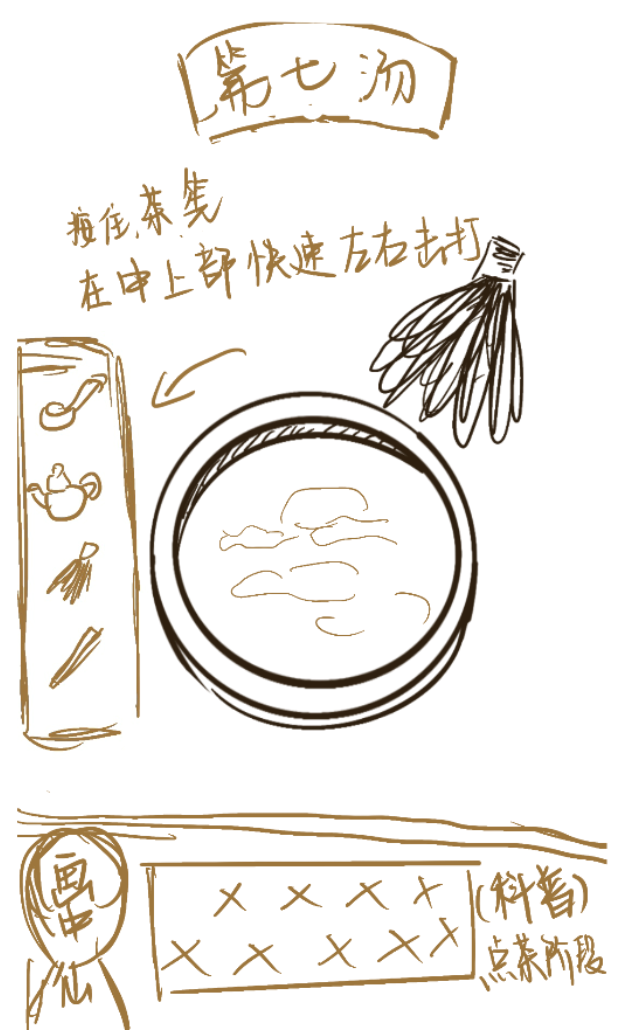 第七汤
按住茶筅
在中上部快速左右击打
画中仙
(科普)
点茶阶段